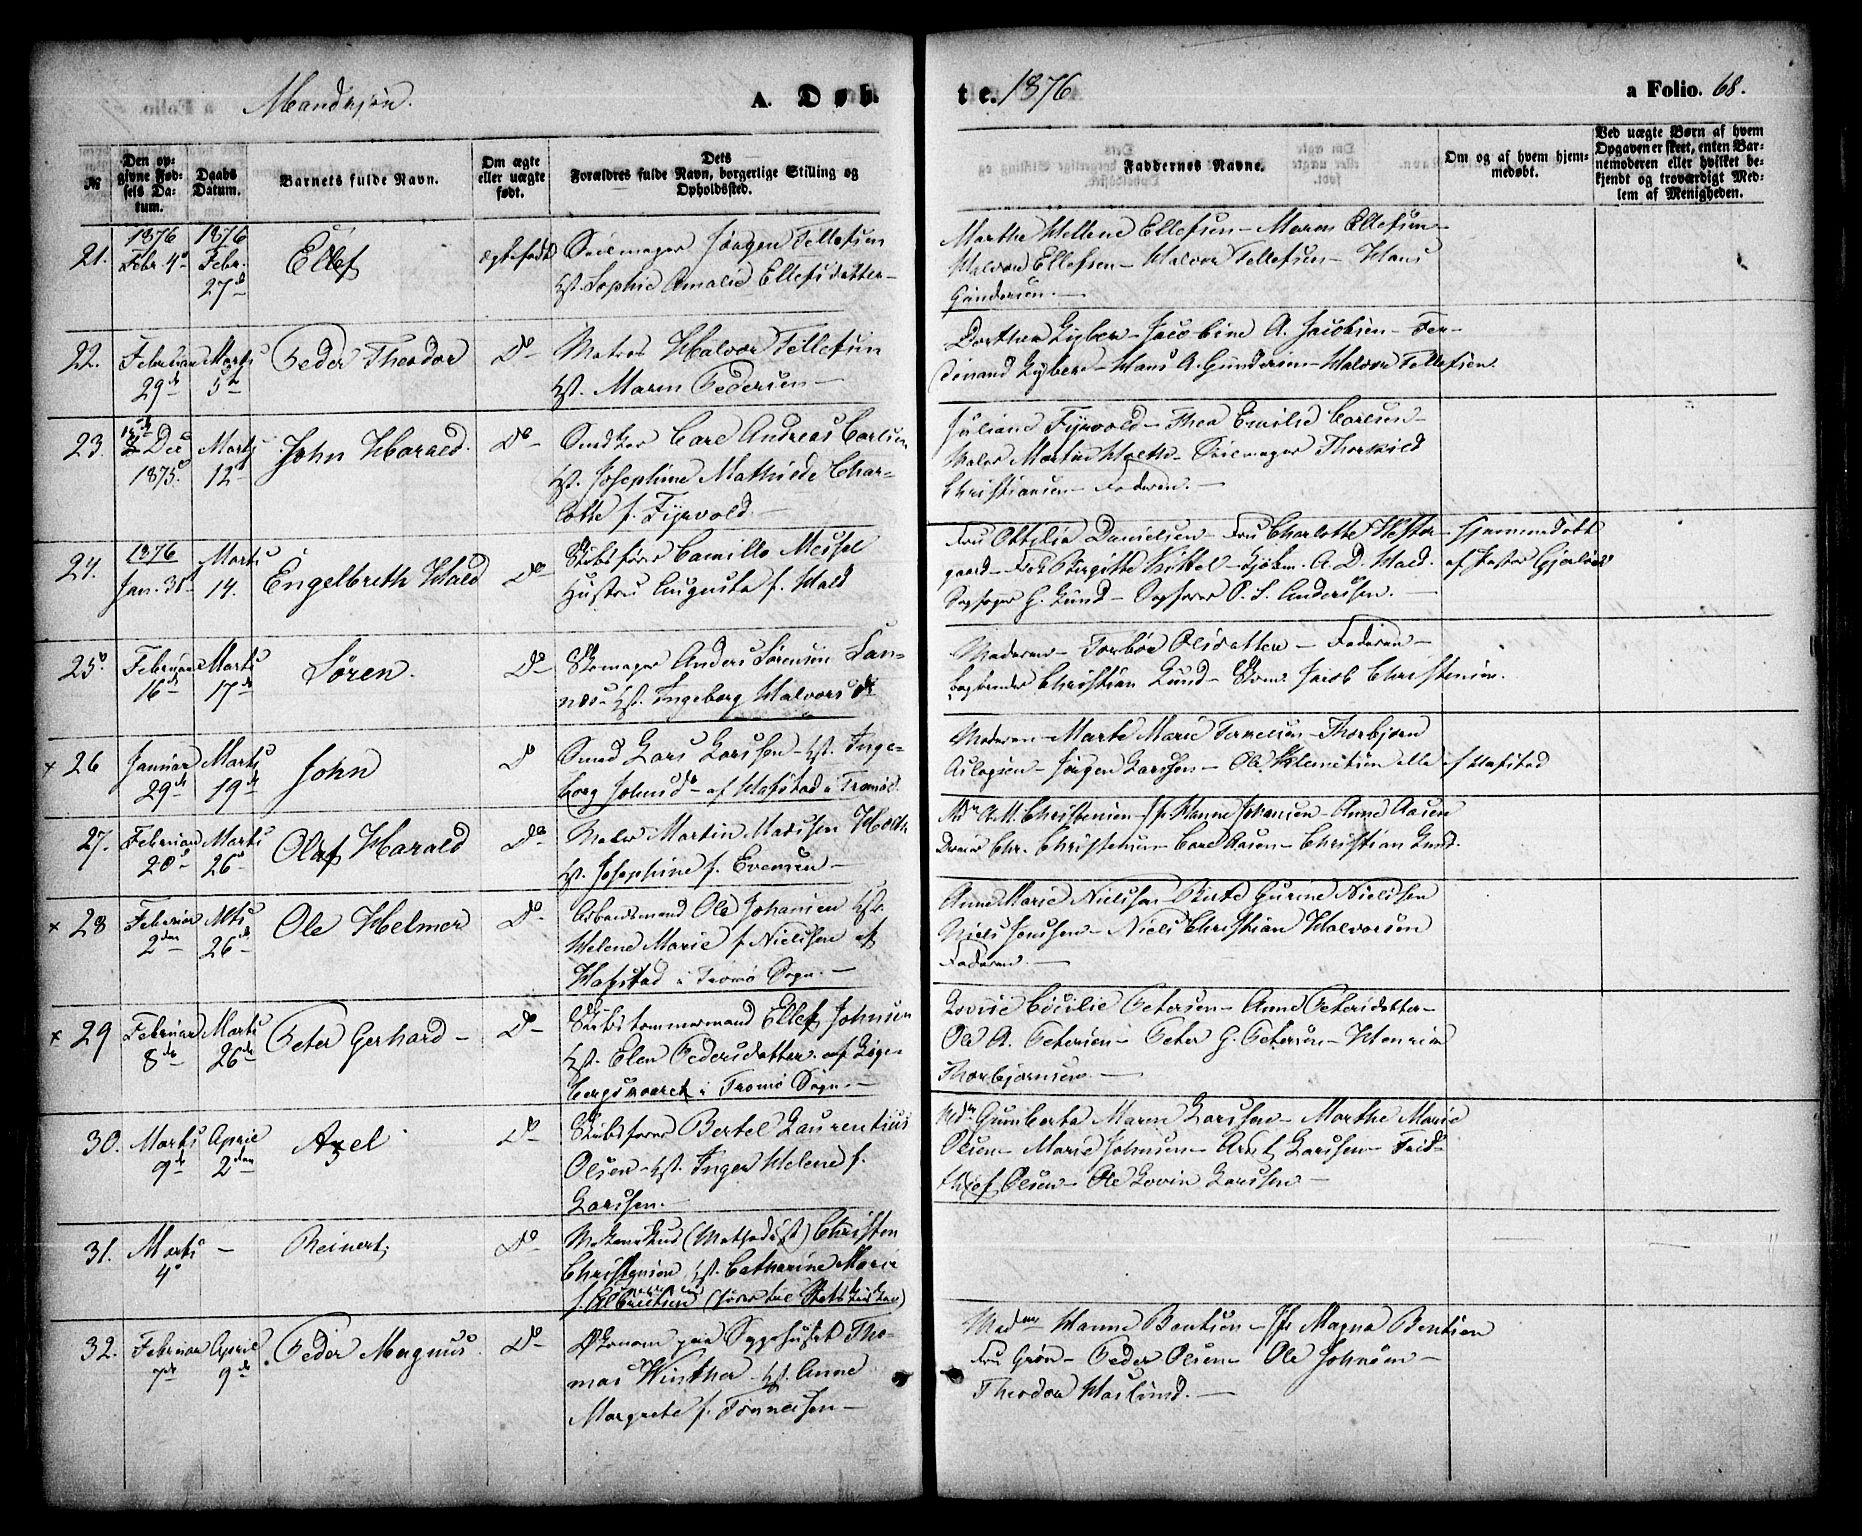 Mandkjøn.
A. Døb-
te. 1876
a Folio. 68.
№
Den op-
givne Fød-
sels Da-
tum.
Daabs
Datum.
Barnets fulde Navn.
Om ægte
eller uægte
født.
Dets
Forældres fulde Navn, borgerlige Stilling og
Opholdssted.
Faddernes Navne.
Om og af hvem hjem-
medøbt.
Ved uægte Børn af hvem
Opgaven er skeet, enten Bar-
nemoderen eller hvilket be-
kjendt og troværdigt Med-
lem af Menigheden.
21.
1876
Febr. 4de
1876
Febr.
27de
Ellef
ægtefødt
Seilmager Jørgen Tellefsen
Hst. Sophie Amalie Ellefsdatter
Marthe Hellene Ellefsen - Maren Ellefsen -
Halvor Ellefsen - Halvor Tellefsen - Hans
Gundersen. -
22.
Februar
29de
Marts
5te
Peder Theodor
Do
Matros Halvor Tellefsen
Hst. Maren Pedersen -
Dorthea Nyberg - Jacobine A. Jacobsen - Fer-
dinand Nyberg - Hans A. Gundersen - Halvor Tellefsen.
23.
Dec
1875.
Marts
12te
John Harald.
Do
Snedker Carl Andreas Carlsen
Hst. Josephine Mathilde Char-
lotte f. Fyrvold. -
Juliane Fyrvold - Thea Emilie Carlsen -
Maler Martin Holth - Seilmager Thorkild
Christiansen - Faderen. -
24.
1876
Jan. 31
Marts
14.
Engelbreth Hald
Do
Skibsfører Camillo Messel
Hustru Augusta f. Hald
Fru Ottilia Danielsen - Fru Charlotte Hester-
gaard - Frk Birgitte Kittel - Kjøbm. A. D. Hald.
Sagfører G. Lund - Sagfører P. S. Andersen. -
Hjemmedøbt
af Pastor
25.
Februar
16de
Marts
17de
Søren.
Do
Skomager Anders Sørensen San-
næs - Hst. Ingeborg Halvorsdr
Moderen - Torbør Olsdatter - Faderen -
Bogbinder Christian Lund - Skom. Jacob Christensen.
× 26
Januar
29de
Marts
19de
John
Do
Smed Lars Larssen - Hst. Inge-
borg Johnsdr - af Hafstad i Tromø.
Moderen - Marte Marie Terjesen - Thorbjørn
Aslagsen - Jørgen Larssen - Ole Klemetsen alle af Hafstad
27.
Februar
20de
Marts
26de
Olaf Harald
Do
Maler Martin Madssen Holth
Hst. Josephine f. Evensen -
Mdm A. M. Christensen - Jfr Hanne Johansen - Anne Aasen
Chr. Christensen - Carl Aasen - Christian Lund.
× 28
Februar
2den
Mts
26de
Ole Helmer
Do
Arbeidsmand Ole Johansen Hst.
Helene Marie f. Nielssen af
Hafstad i Tromø Sogn. -
Anne Marie Nielssen - Birte Gurine Nielssen
Niels Jenssen - Niels Christian Halvorsen
Faderen. -
× 29
Februar
8de
Marts
26de
Peter Gerhard -
Do
Skibstømmermand Ellef Johnsen
Hst. Elen Pedersdatter af Løge-
bergsmoeret i Tromø Sogn. -
Lovise Cecilie Petersen - Anne Petersdatter -
Ole A. Petersen - Peter G. Petersen - Henrik
Thorbjørnsen. -
30.
Marts
9de
April
2den
Axel
Do
Skibsfører Bertel Laurentius
Olsen - Hst. Inger Helene f.
Larssen.
Mdm Gumberta Maren Larssen - Marthe Marie
Olsen - Marie Johnsen - Axel Larssen - Frid-
thjof Olsen - Ole Lovin Larssen -
31.
Marts
4de
-
Reinert
Do
Mekanikus (Methodist) Christen
Christensen Hst. Catharine Marie
f. Albretsen (hører til Statskirken)
32.
Februar
7de
April
9de
Peder Magnus.
Do
Økonom paa Sygehuset Tho-
mas Winther - Hst. Anne
Margrete f. Tønnessen -
Madme Hanne Bentsen - Jfr Magna Bentsen
Fru Grøn - Peder Olsen - Ole Johnsen -
Theodor Haslund. -